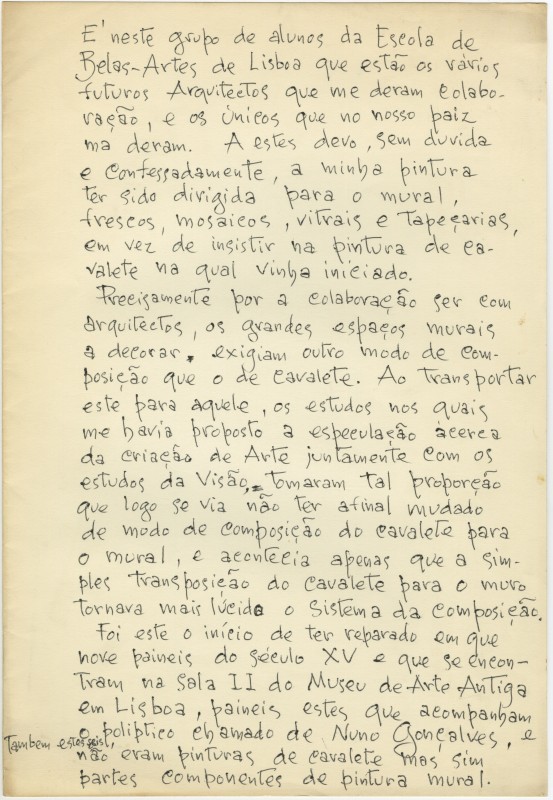 E' neste grupo de alunos da Escola de
Belas-Artes de Lisboa que estão os vários
futuros Arquitectos que me deram colabo-
ração, e os únicos que no nosso paiz
ma deram. A estes devo, sem duvida
e confessadamente, a minha pintura
ter sido dirigida para o mural,
frescos, mosaicos, vitrais e Tapeçarias,
em vez de insistir na pintura de ca-
valete na qual vinha iniciado.
Precisamente por a colaboração ser com
arquitectos, os grandes espaços murais
a decorar, exigiam outro modo de com-
posição que o de cavalete. Ao transportar
este para aquele, os estudos nos quais
me havia proposto a especulação àcerca
da criação de Arte juntamente com os
estudos da Visão, tomaram tal proporção
que logo se via não ter afinal mudado
de modo de composição do cavalete para
o mural, e acontecia apenas que a sim-
ples transposição do cavalete para o muro
tornava mais lúcido o Sistema da composição.
Foi este o início de ter reparado em que
nove paineis do século XV e que se encon-
tram na Sala II do Museu de Arte Antiga
em Lisboa, paineis estes que acompanham
o políptico chamado de Nuno Gonçalves, e
Tambem estes seis,
não eram pinturas de cavalete mas sim
partes componentes de pintura mural.